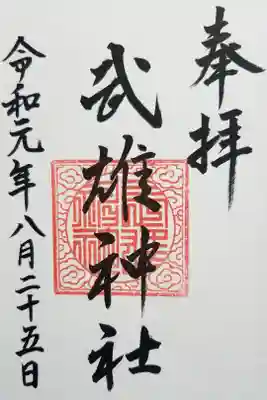 奉拝
武雄神社
令和元年八月二十五日